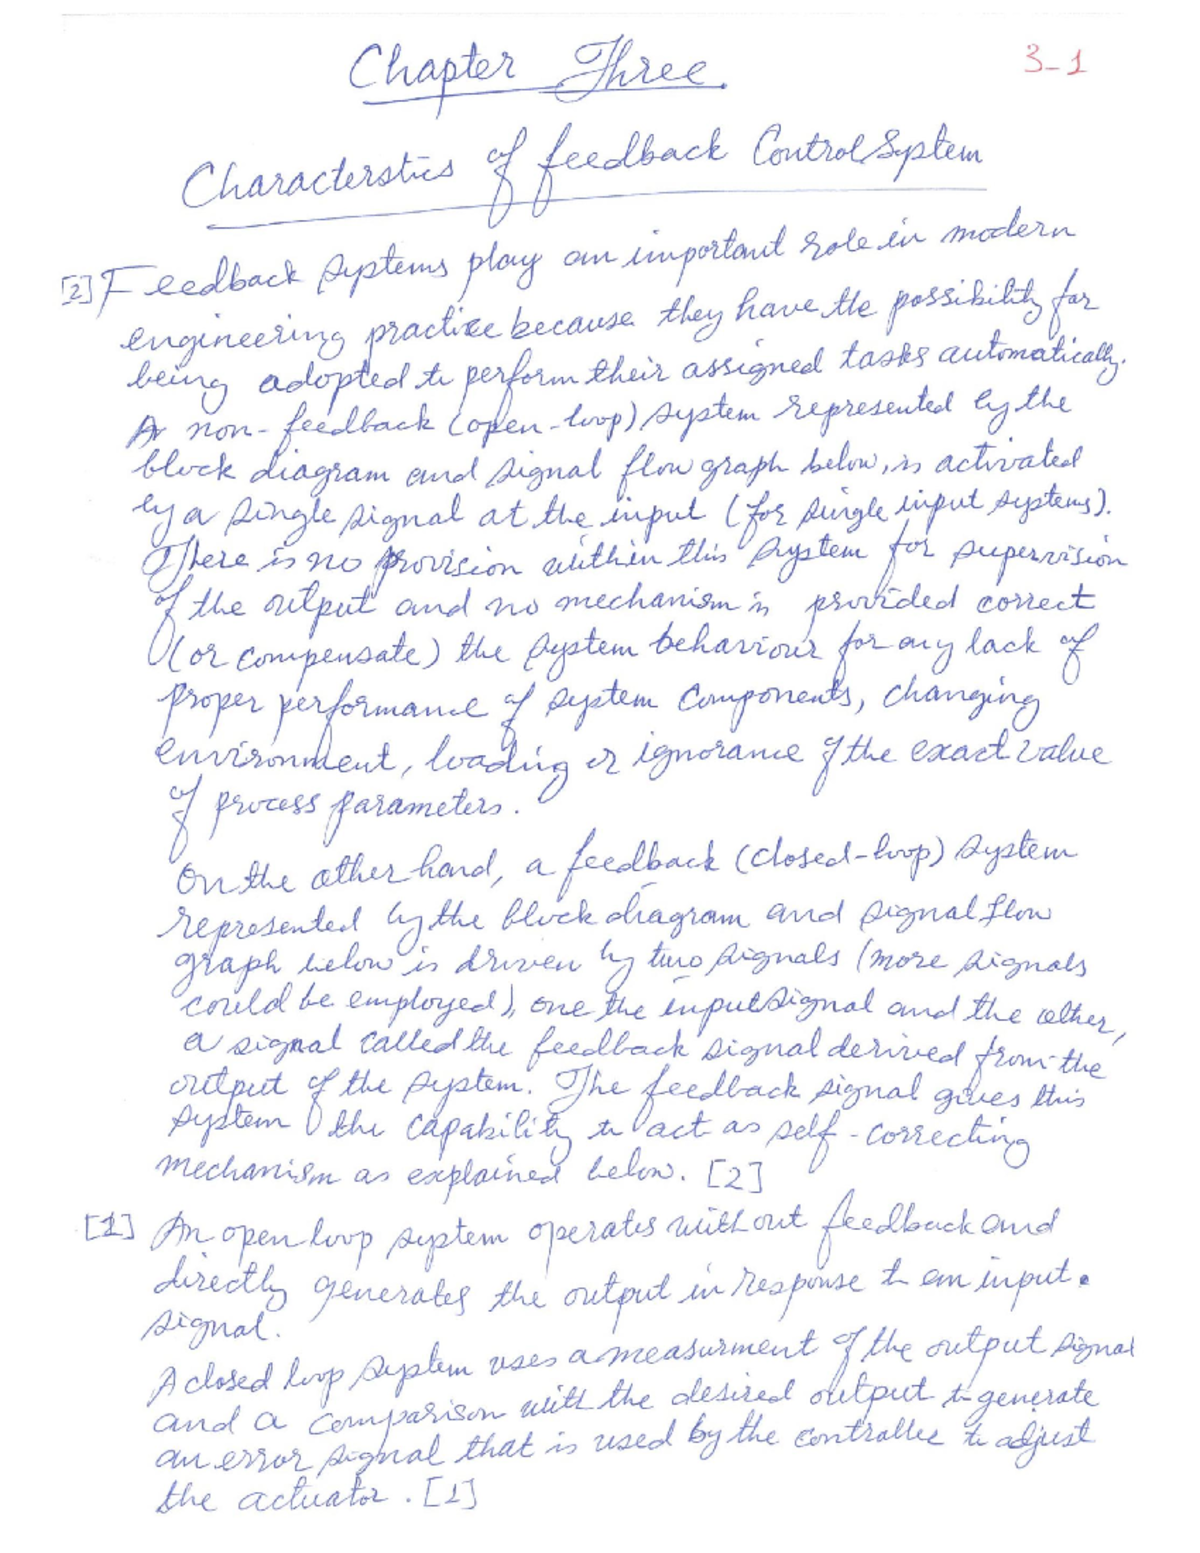 3-1
Chapter Three.
Characterstics of feedback Control System
[2] Feedback systems play an important role in modern
engineering practice because they have the possibility for
being adopted to perform their assigned tasks automatically.
A non-feedback (open-loop) system represented by the
block diagram and signal flow graph below, is activated
by a single signal at the input (for single input systems).
There is no provision within this system for supervision
of the output and no mechanism is provided correct
(or compensate) the system behaviour for any lack of
proper performance of system components, changing
environment, loading or ignorance of the exact value
of process parameters.
On the other hand, a feedback (closed-loop) system
represented by the block diagram and signal flow
graph below is driven by two signals (more signals
could be employed), one the input signal and the other,
a signal called the feedback signal derived from the
output of the system. The feedback signal gives this
system the capability to act as self-correcting
mechanism as explained below. [2]
[1] An open loop system operates without feedback and
directly generates the output in response to an input.
signal.
A closed loop system uses a measurment of the output signal
and a comparison with the desired output to generate
an error signal that is used by the controller to adjust
the actuator. [1]